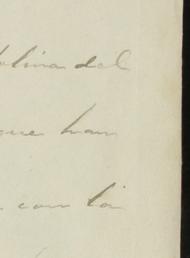 olina del
que han
con la